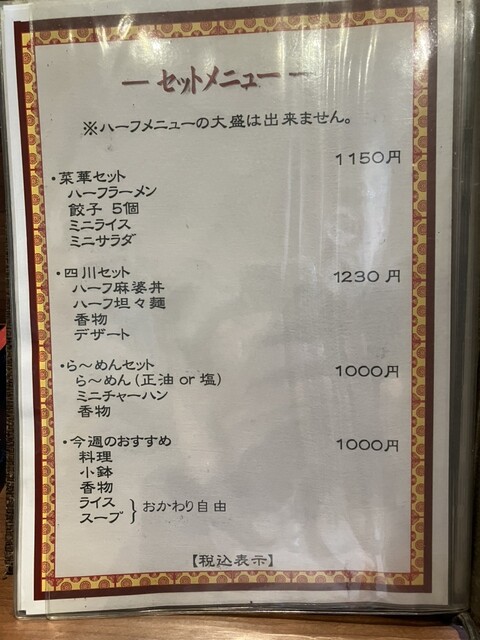 ー セットメニュー ー
※ハーフメニューの大盛は出来ません。
・菜華セット 1150円
ハーフラーメン
餃子 5個
ミニライス
ミニサラダ
・四川セット 1230円
ハーフ麻婆丼
ハーフ坦々麺
香物
デザート
・ら〜めんセット 1000円
ら〜めん(正油 or 塩)
ミニチャーハン
香物
・今週のおすすめ 1000円
料理
小鉢
香物
ライス
スープ } おかわり自由
【税込表示】